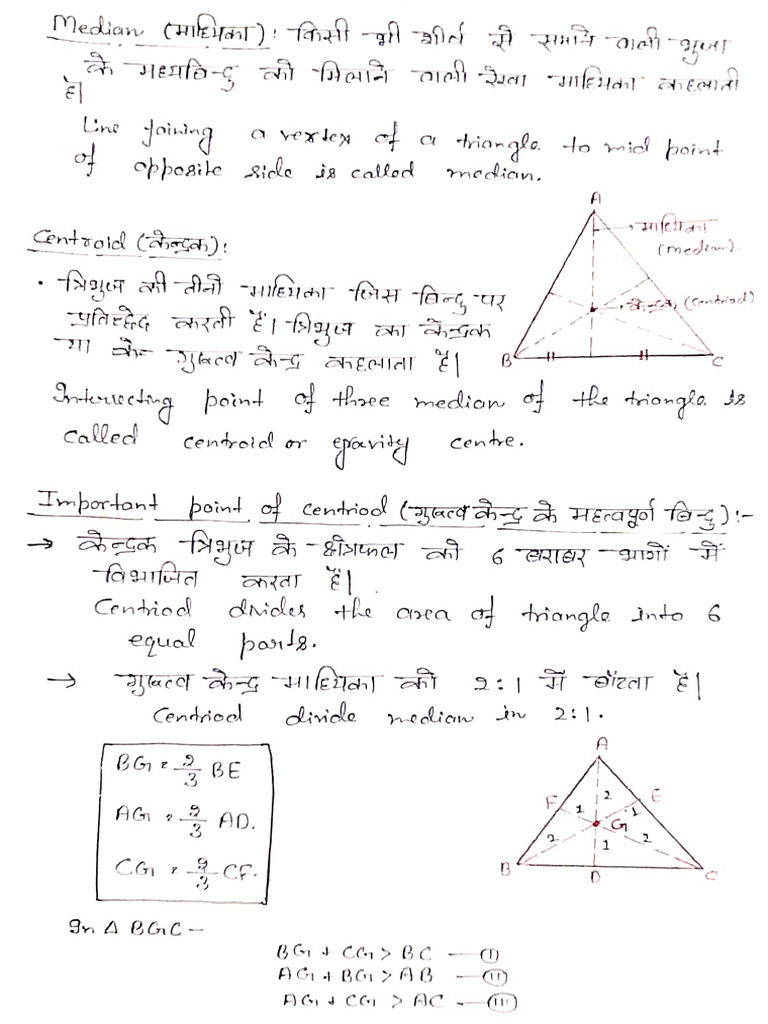 Median (माध्यिका) : किसी भी शीर्ष से सामने वाली भुजा
के मध्यबिन्दु को मिलाने वाली रेखा माध्यिका कहलाती
है।
Line joining a vertex of a triangle to mid point
of opposite side is called median.
Centroid (केन्द्रक) :
• त्रिभुज की तीनो माध्यिका जिस बिन्दु पर
प्रतिच्छेद करती हैं। त्रिभुज का केन्द्रक
या के गुरुत्व केन्द्र कहलाता है।
A
माध्यिका
(median).
केन्द्रक (centriod)
B
C
Intersecting point of three median of the triangle is
called centroid or gravity centre.
Important point of centriod (गुरुत्व केन्द्र के महत्वपूर्ण बिन्दु) :-
→ केन्द्रक त्रिभुज के क्षेत्रफल को 6 बराबर भागों में
विभाजित करता है।
Centriod divides the area of triangle into 6
equal parts.
→ गुरुत्व केन्द्र माध्यिका को 2:1 में बाँटता है।
Centriod divide median in 2:1.
BG = 2/3 BE
AG = 2/3 AD.
CG = 2/3 CF.
A
F 1 2 E
G 1
2 1 2
B D C
In Δ BGC –
BG + CG > BC — (I)
AG + BG > AB — (II)
AG + CG > AC — (III)